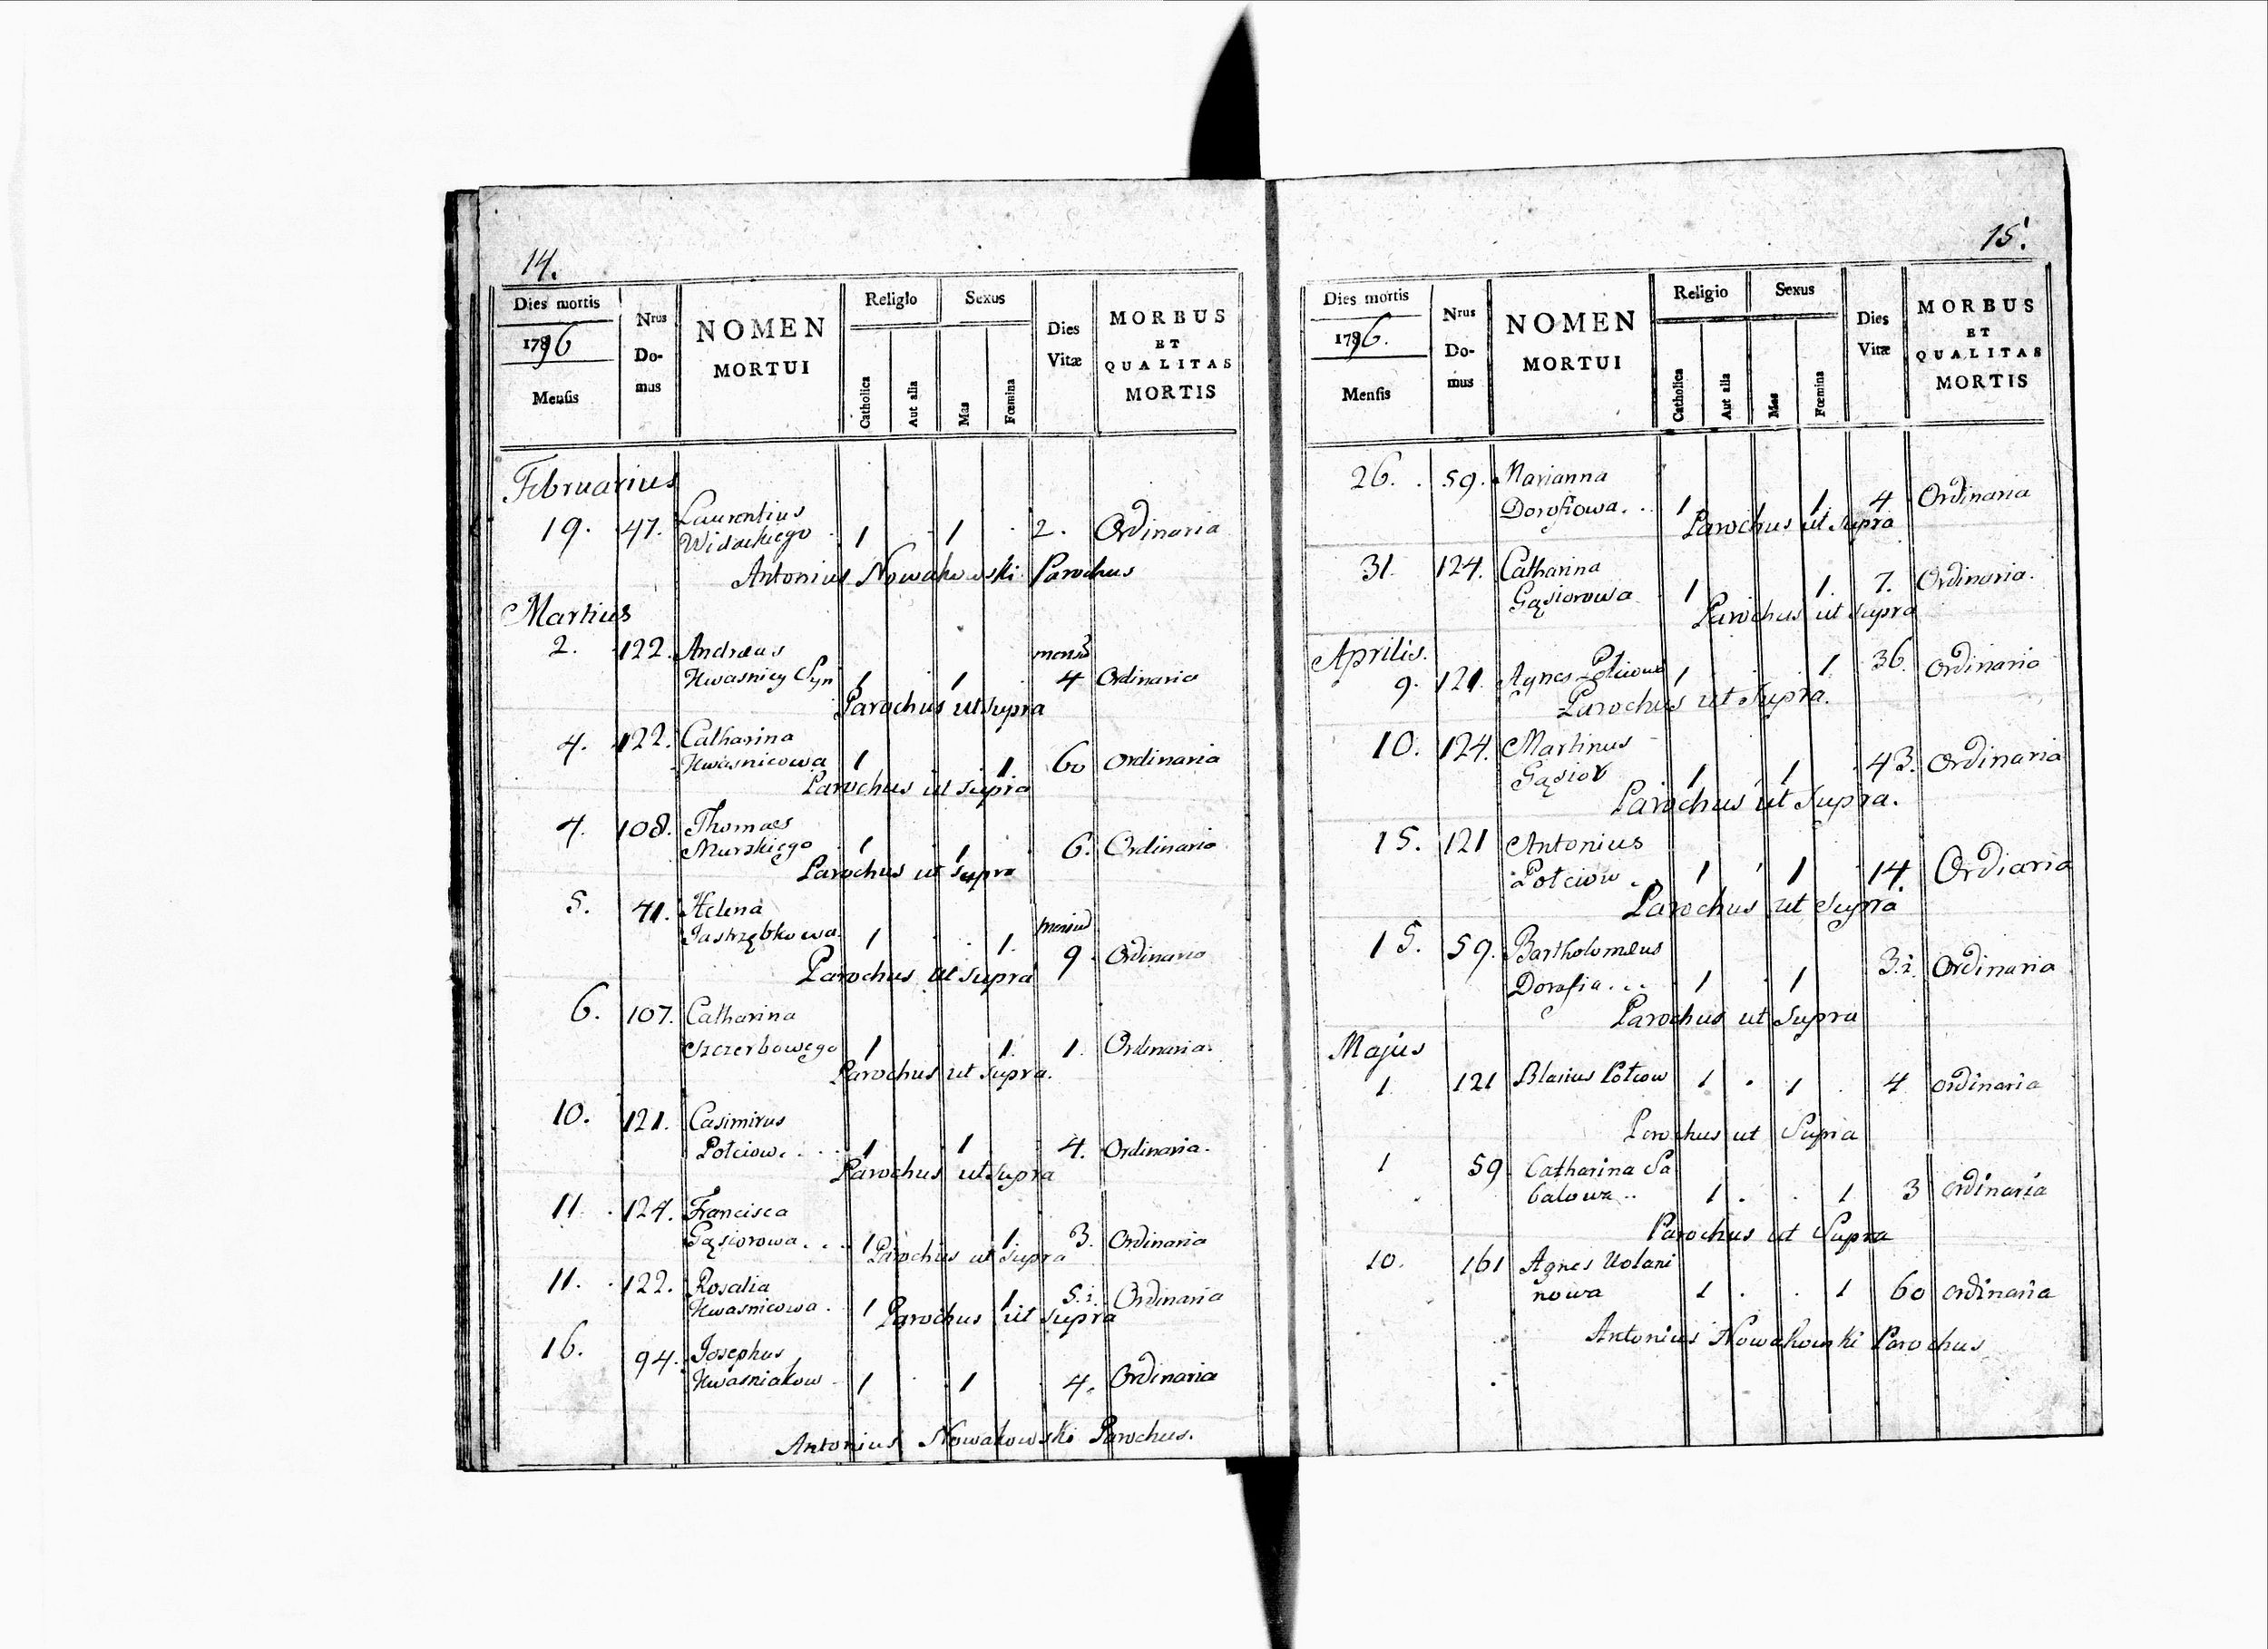 14.
Dies mortis
1796
Mensis
Nrus
Do-
mus
NOMEN
MORTUI
Religio
Catholica
Aut alia
Sexus
Mas
Fœmina
Dies
Vitæ
MORBUS
ET
QUALITAS
MORTIS
Februarius
19. 47. Laurentius
Widackiego 1 1 2. Ordinaria
Antonius Nowakowski Parochus
Martius
2. 122. Andræas mens
Kwasnicy Syn 1 1 4 Ordinaria
Parochus ut supra
4. 122. Catharina
Kwasnicowa 1 1 60 Ordinaria
Parochus ut supra
4. 108. Thomas
Murskiego 1 1 6. Ordinaria
Parochus ut supra
5. 41. Helena
Jastrząbkowa 1 1. 9 Ordinaria
Parochus ut supra
6. 107. Catharina
Szczerbowego 1 1. 1. Ordinaria.
Parochus ut supra.
10. 121. Casimirus
Połciow. . . . 1 1 4. Ordinaria.
Parochus ut supra
11. 124. Francisca
Gąsiorowa. . . 1 1. 3. Ordinaria
Parochus ut supra
11. 122. Rosalia
Kwasnicowa. 1 1 5.½ Ordinaria
Parochus ut supra
16. 94. Josephus
Kwasniakow 1 1 4. Ordinaria
Antonius Nowakowski Parochus.
15.
Dies mortis
1796.
Mensis
Nrus
Do-
mus
NOMEN
MORTUI
Religio
Catholica
Aut alia
Sexus
Mas
Fœmina
Dies
Vitæ
MORBUS
ET
QUALITAS
MORTIS
26. 59. Marianna
Dorofiowa. . . 1 1 4 Ordinaria
Parochus ut supra
31. 124. Catharina
Gąsiorowa 1 1. 7. Ordinaria.
Parochus ut supra
Aprilis.
9. 121. Agnes Połciowa 1 1 36. Ordinaria
Parochus ut supra.
10. 124. Martinus
Gąsior 1 1 43. Ordinaria
Parochus ut supra.
15. 121 Antonius
Połciow . . 1 1 14. Ordiaria
Parochus ut supra
15. 59. Bartholomæus
Dorofia. . . 1 1 3.½ Ordinaria
Parochus ut supra
Majus
1. 121 Blasius Połciow 1 1 4 ordinaria
Parochus ut Supra
1 59 Catharina Sa
balowa .. 1 1 3 ordinaria
Parochus ut Supra
10. 161 Agnes Uolani
nowa 1 1 60 ordinaria
Antonius Nowakowski Parochus